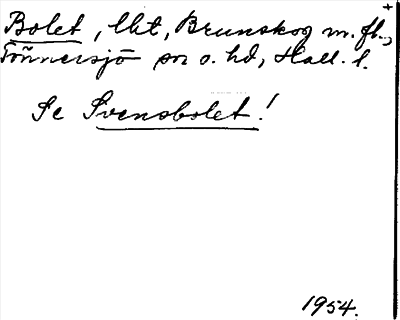 Bolet, lht, Brunskog m. fl.,
Tönnersjö sn o. hd, Hall. l.
Se Svensbolet!
1954.